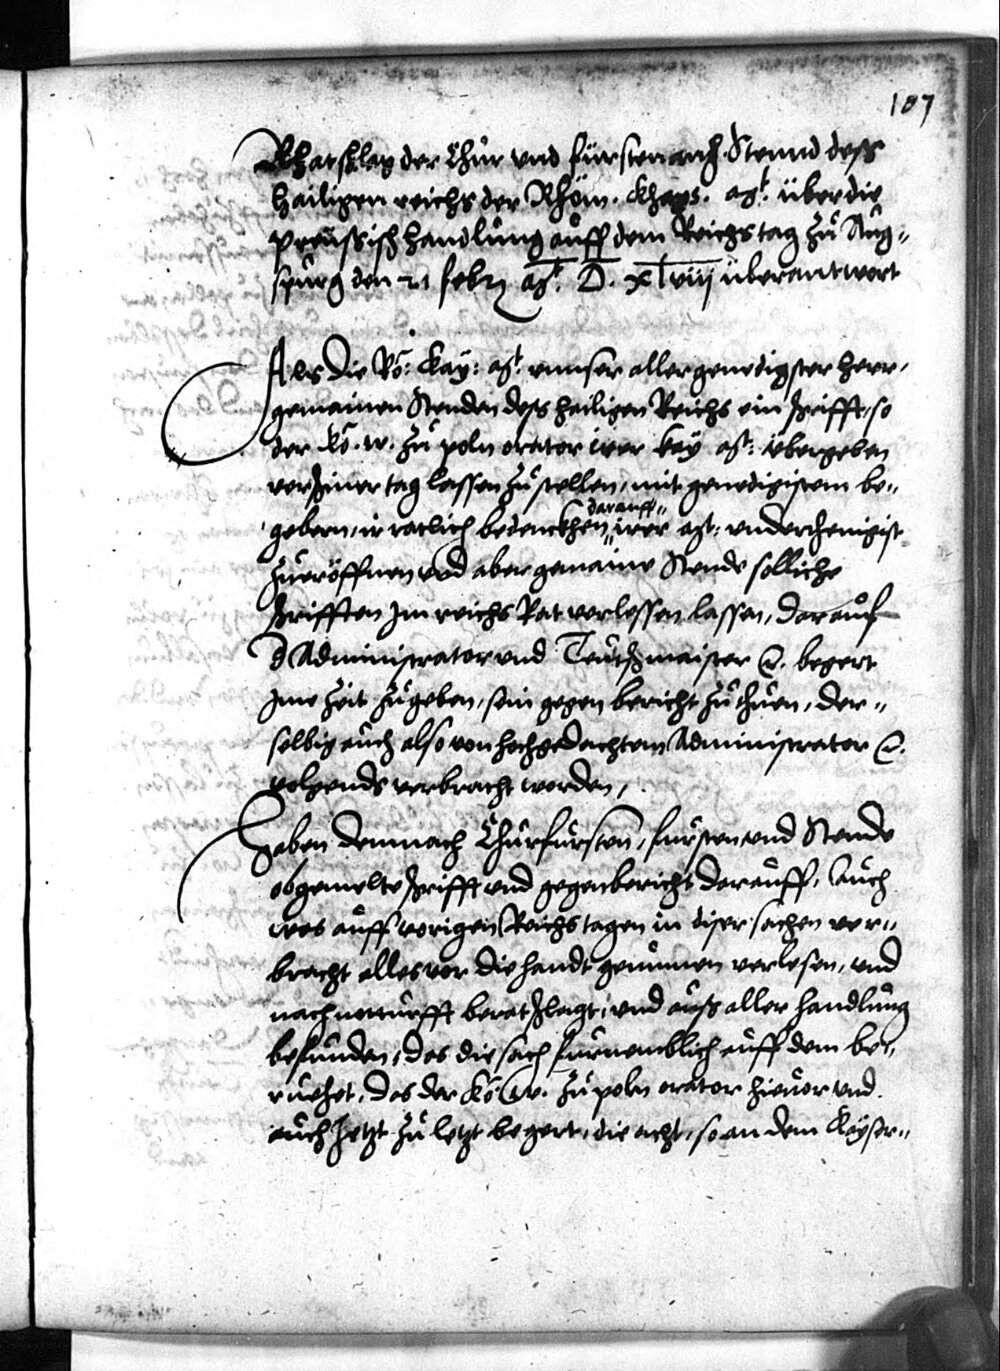 107
Rhatschlag der Chur und fürsten auch Stennd dess
hailigen reichs der Rhöm. Khays. Mt. über die
preüssisch handlung auff dem Reichstag zu Aug-
spurg den 21 febr. Aº. D. xlviij überantwort
Als die Rö: Kay: Mt. unnser aller genedigster herr,
gemainen Stenden dess hailigen Reichs ein schrifft, so
der Kö. W. zu poln orator irer Kay Mt: übergeben
verschiner tag lassen zu stellen, mit genedigistem be-
gebern, ir ratlich bedenckhen darauff irer Mt: underthenigist
zueröffnen und aber gemaine Stende solliche
schrifften Im reichs Rat verlessen lassen, darauf
d Administrator und Teutschmaister &. begert
Ime zeit zu geben, sein gegen bericht zu thuen, der-
selbig auch also von hochgedachtem Administrator &.
volgends verbracht worden,
Haben demnach Churfursten, fursten und Stende
obgemelte schrifft und gegenbericht darauff, Auch
was auff vorigen Reichstagen in diser sachen ver-
bracht alles vor die handt genummen verlesen, und
nach notturfft beratschlagt, und auss aller handlung
befunden, das die sach furnemblich auff dem be-
ruehet, das der Kö W. zu poln orator hievor und
auch Jetzt zu letzt begert, die acht, so an dem Kayser-